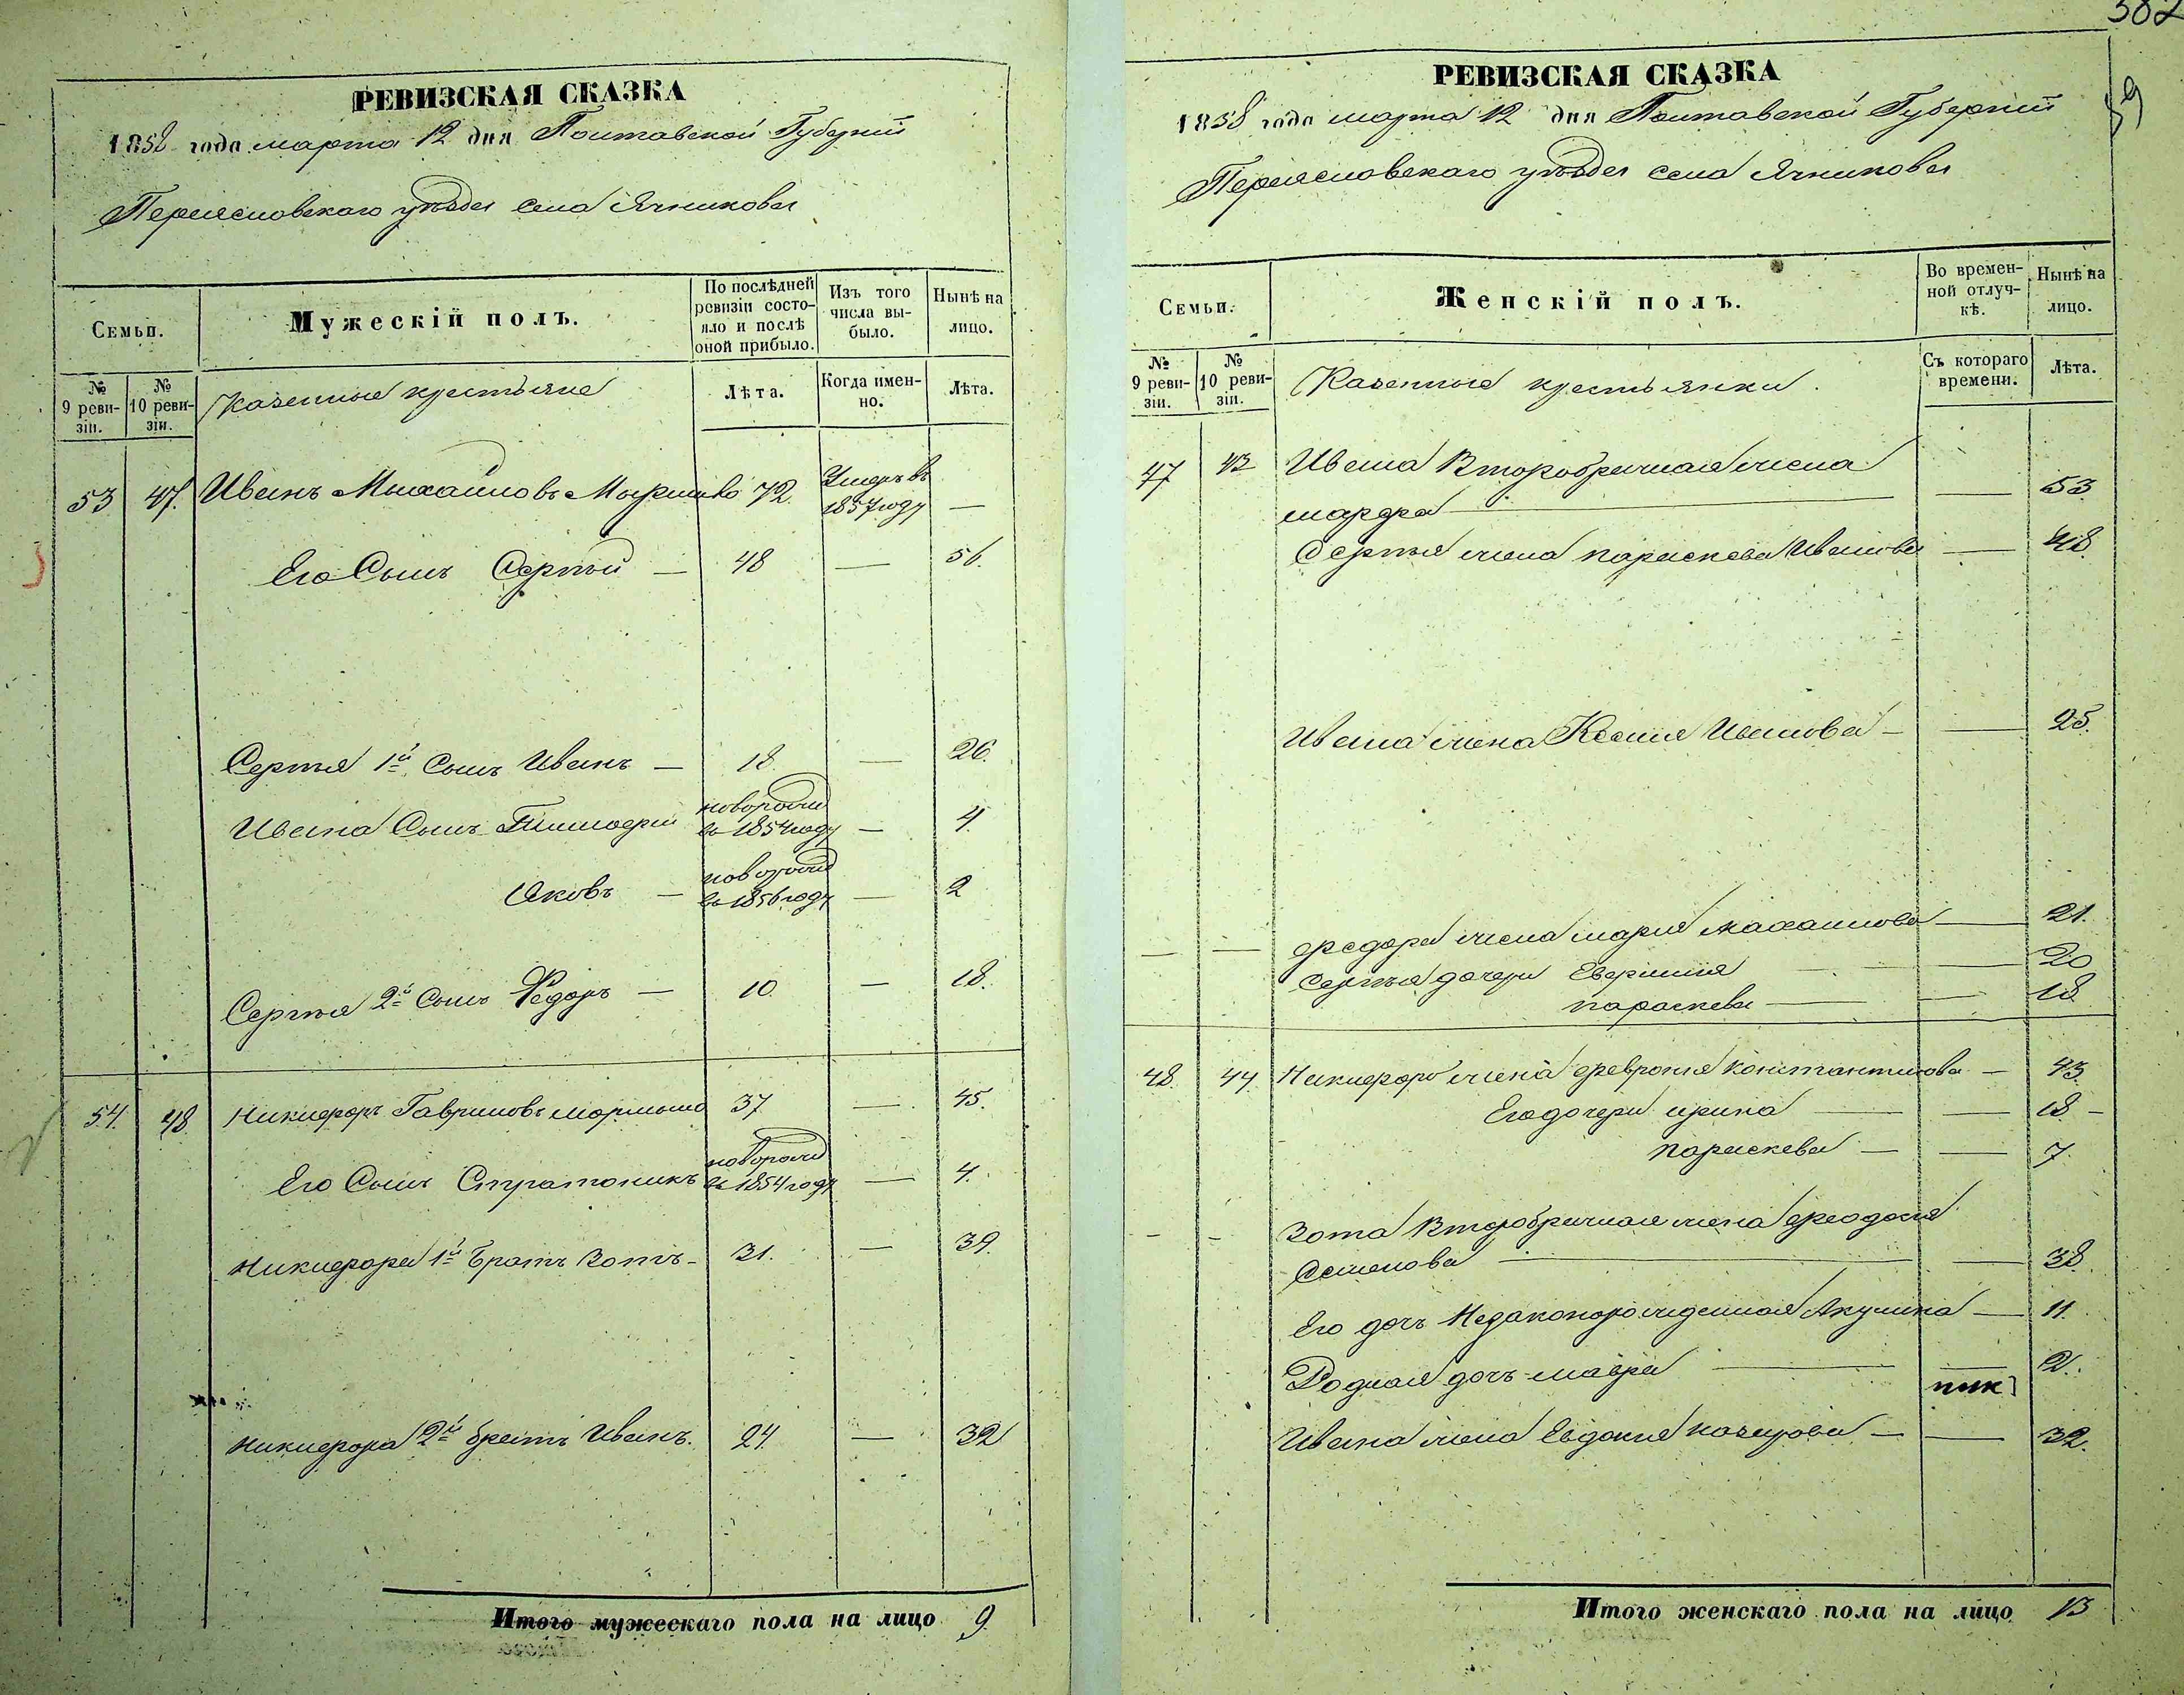 РЕВИЗСКАЯ СКАЗКА
1858 года марта 12 дня Полтавской Губернии
Переясловскаго уѣзда села Ячникова
Семьи.
Мужескій полъ.
По послѣдней ревизіи состояло и послѣ оной прибыло.
Изъ того числа выбыло.
Нынѣ на лицо.
№ 9 ревизіи.
№ 10 ревизіи.
Казенные крестьяне
Лѣта.
Когда именно.
Лѣта.
53 47. Иванъ Михайловъ 72 Умеръ въ 1857 году —
Его Сынъ Сергѣй — 48 — 56.
Сергѣя 1й Сынъ Иванъ — 18 — 26.
Ивана Сынъ Тимофей новорожд въ 1854 году — 4.
Яковъ — новорожд въ 1856 году — 2
Сергѣя 2й Сынъ Федоръ — 10. — 18.
54. 48 Никифоръ Гавриловъ 37 — 45.
Его Сынъ Стратоникъ новорожд въ 1854 году — 4.
Никифора 1й братъ Зотъ — 31. — 39.
Никифора 2й братъ Иванъ. 24 — 32
Итого мужескаго пола на лицо 9.
382
РЕВИЗСКАЯ СКАЗКА
1858 года марта 12 дня Полтавской Губерніи
Переясловскаго уѣзда села Ячникова
Семьи.
Женскій полъ.
Во временной отлучкѣ.
Нынѣ на лицо.
№ 9 ревизіи.
№ 10 ревизіи.
Казенные крестьянки.
Съ котораго времени.
Лѣта.
47 Ивана Второбрачная жена
марфа — — 53
Сергѣя жена параскева Иванова — 48.
Ивана жена Ксения Иванова — — 25.
— — федора жена мария михаилова — 21.
Сергѣя дочери — 20
параскева — — 18
48. 44 Никифора жена феврония константинова — 43.
Его дочери ирина — — 18 —
параскева — — 7.
— — Зота Второбрачная жена феодосия
Семенова — — 38.
Его дочь Незаконорожденная Акулина — 11.
Родная дочь мавра — — 2.
Ивана жена Евдокия назарова — — 32.
Итого женскаго пола на лицо 13